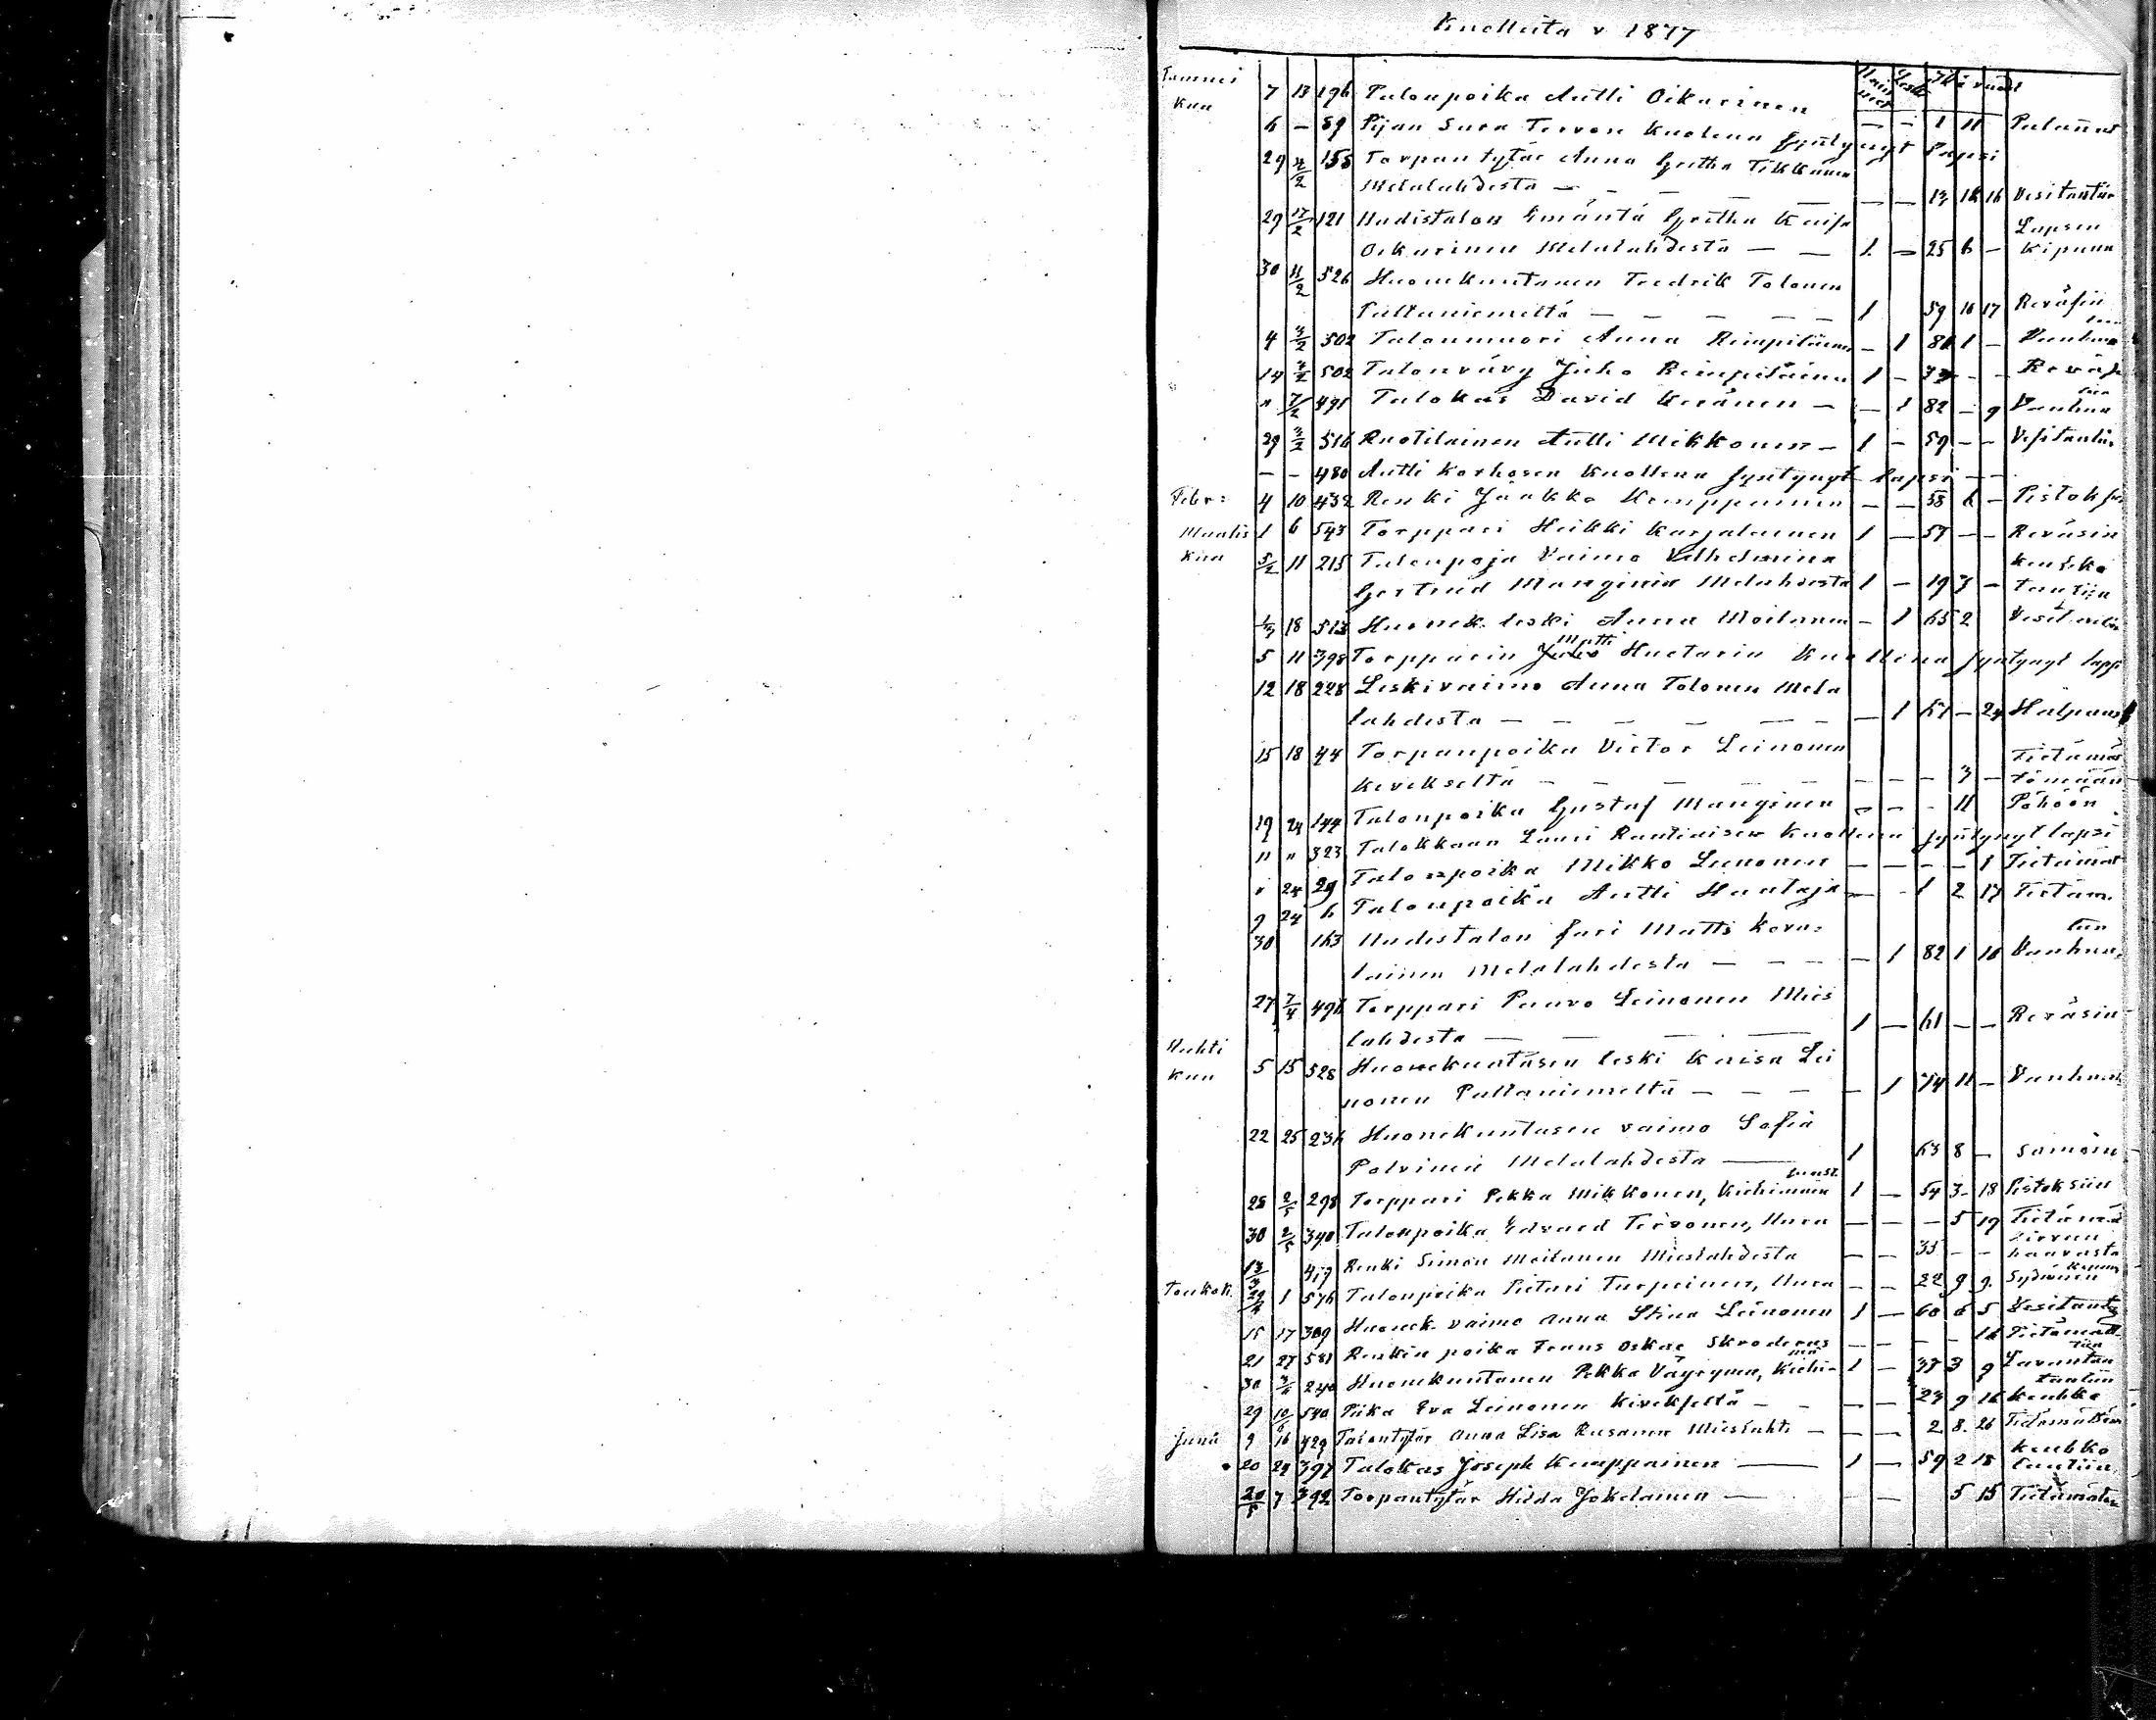 Kuolleita v 1877
Tammi Kuu 7 13 196 Talonpoika Antti Oikarinen
Nai neet Leski Ikä vuod
6 – 59 Pijan Sara Tervon Kuolena syntynyt Lapsi – – 1 11 Palannut
29 4/2 155 Torpan tytär Anna Gretha Tikkanen
Melalahdesta – – – – – – 13 16 Vesitautiin
29 17/2 121 Uudistalon Emäntä Gretha Kaisa Lapsen
Oikarinen Melalahdesta – – 1 – 25 6 – Kipuun
30 11/2 526 Huonekuntanen Fredrik Tolonen
Paltaniemeltä – – – – – 1 59 10 17 Reväsiin
4 3/2 502 Talonmuori Anna Rimpiläinen – 1 81 1 – Vanhuu
14 3/2 502 Talonvävy Juho Rimpiläinen 1 – 33 – – Reväsiin
" 7/2 491 Talokas David Keränen – – 1 82 – 9 Vanhuu
29 3/2 516 Ruotilainen Antti Mikkonen – 1 – 59 – – Vesitautiin
– – 480 Antti Korhosen Kuollena syntynyt lapsi – –
Febr: 4 10 432 Renki Jaakko Kemppainen – – 38 6 – Pistoksiin
Maalis Kuu 1 6 543 Torppari Heikki Karjalainen 1 – 57 – – Reväsiin
5/2 11 215 Talonpoja Vaimo Vilhelmina Keuhko
Gertrud Manginin Melalahdesta 1 – 19 3 – tautiin
1/3 18 513 Huonek. leski Anna Moilanen – 1 65 2 Vesitautiin
5 11 398 Torpparin Juho Matti Huotarin Kuollena syntynyt lapsi
12 18 228 Leskivaimo Anna Tolonen Mela
lahdesta – – – – – – – 1 61 – 24 Halpaus
15 18 44 Torpanpoika Victor Leinonen Tietämät
Kivekseltä – – – – – – – – – 3 – tömään
19 24 144 Talonpoika Gustaf Manginen – – – 11 Pöhöön
" " 323 Talokkaan Lauri Rautiaisen Kuollena syntynyt lapsi
" 24 29 Talonpoika Mikko Leinonen – – – – 1 Tietämät
9 24 6 Talonpoika Antti Huotaja – – 1 2 17 Tietäm. tön
30 163 Uudistalon fari Matts Kova:
lainen Melalahdesta – – – – 1 82 1 16 Vanhuu,
27 7/4 496 Torppari Paavo Leinonen Mies
lahdesta – – – – 1 – 61 – – Reväsiin
Huhti Kuu 5 15 528 Huonekuntasen leski Kaisa Lei
nonen Paltaniemeltä – – – – 1 74 11 – Vanhuut
22 25 236 Huonekuntasen vaimo Sofia
Polvinen Melalahdesta – 1 63 8 – samoin
28 2/5 298 Torppari Pekka Mikkonen, Kiehimäen suust. 1 – 54 3 – 18 Pistoksiin
30 2/5 340 Talonpoika Edvard Tervonen, Uura – – – 5 19 Tietämä
13/3 417 Renki Simon Moilanen Mieslahdesta – – 35 – – kirveen haavasta
Toukok. 29/4 1 576 Talonpoika Pietari Turpeinen, Uura – – 22 9 9. Sydämen
15 17 309 Huonek. vaimo Anna Stina Leinonen 1 – 60 6 5 Vesitauti
21 27 581 Renkin poika Frans Oskar Skroderus – – – – 16 Tietämätt
30 3/6 240 Huonekuntanen Pekka Väyrynen, Kiehimä 1 – 35 3 9 Lavantautiin
29 10/6 540 Piika Eva Leinonen Kivekseltä – – – – 23 9 16 Keuhko tautiin
Juni 9 16 429 Talontytär Anna Lisa Rusanen Mieslahti – – – 2 8. 26 Tietämättöm
20 24 397 Talokas Joseph Kemppainen – 1 – 59 2 18 Keuhko tautiin
20/5 7 392 Torpantytär Hilda Jokelainen – – – 5 15 Tietämätön